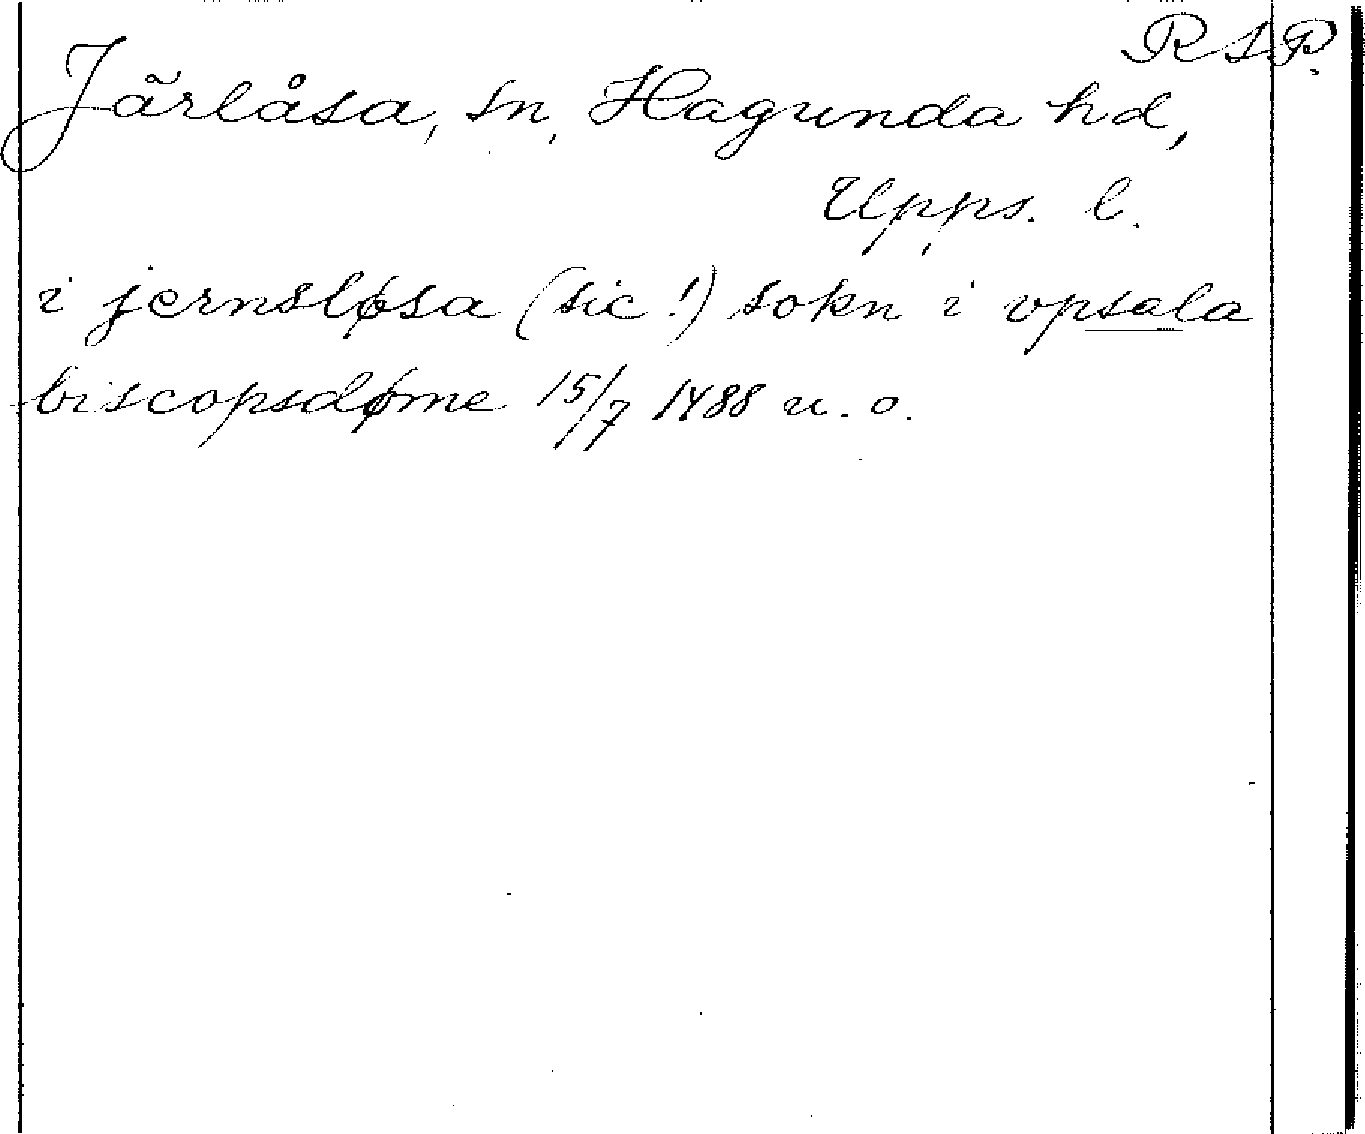 RSP.
Järlåsa, sn, Hagunda hd,
Upps. l.
i jernsløsa (sic!) sokn i vpsala
biscopsdøme 15/7 1488 u. o.